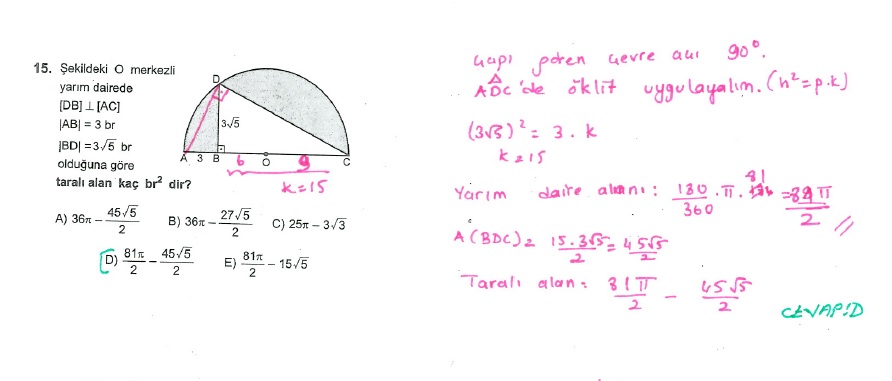 15. Şekildeki O merkezli
yarım dairede
[DB] ⊥ [AC]
|AB| = 3 br
|BD| = 3√5 br
olduğuna göre
taralı alan kaç br² dir?
D
3√5
A 3 B 6 O 9 C
k=15
A) 36π − 45√5/2 B) 36π − 27√5/2 C) 25π − 3√3
D) 81π/2 − 45√5/2 E) 81π/2 − 15√5
çapı gören çevre açı 90°.
ADC'de öklit uygulayalım. (h² = p.k)
(3√5)² = 3 . k
k=15
Yarım daire alanı: 180/360 . π . 81 = 81π/2 //
A(BDC) = 15.3√5/2 = 45√5/2
Taralı alan: 81π/2 − 45√5/2
CEVAP:D